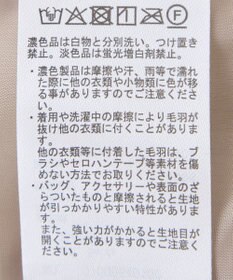 濃色品は白物と分別洗い。つけ置き
禁止。淡色品は蛍光増白剤禁止。
・濃色製品は摩擦や汗、雨等で濡れ
た際に他の衣類や小物類に色が移
る事がありますのでご注意くださ
い。
・着用や洗濯中の摩擦により毛羽が
抜け他の衣類に付くことがありま
す。
他の衣類等に付着した毛羽は、ブ
ラシやセロハンテープ等素材を傷
めない方法でお取りください。
・バッグ、アクセサリーや表面のざ
らついたものと摩擦されると生地
が引っかかりやすい特性がありま
す。
また、強い力がかかると生地目が
開くことがありますのでご注意く
ださい。